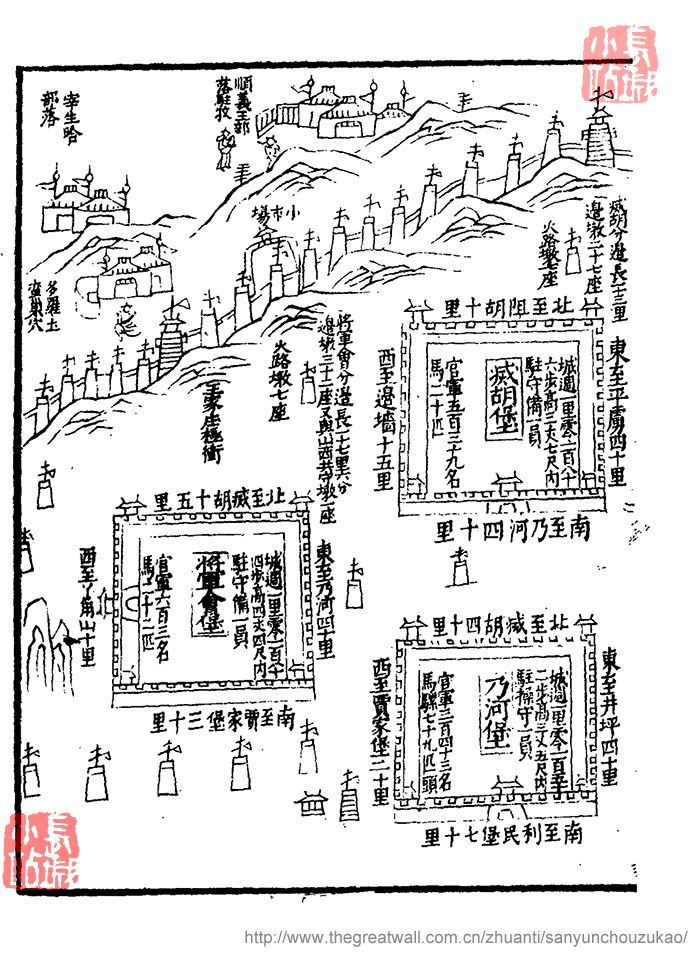 順義王部
落駐牧
宰生哈
部落
小市場
多羅土
蠻巢穴
臧胡分邊長十三里
邊墩二十七座
火路墩七座
北至阻胡十里
東至平虜四十里
西至邊墻十五里
南至乃河四十里
城週一里零一百八十
六步高三丈七尺內
駐守備一員
威胡堡
官軍五百三十九名
馬二十匹
將軍會分邊長二十七里六分
邊墩三十二座又與山西共守墩一座
火路墩七座
北至威胡十五里
東至乃河四十里
西至丫角山十里
南至賈家堡三十里
駐守備一員
將軍會堡
官軍六百三名
馬二十二匹
北至威胡四十里
東至井坪四十里
西至賈家堡二十里
南至利民堡七十里
二步高三丈五尺內
駐操守一員
乃河堡
官軍三百四十三名
馬騾七十九匹頭
http://www.thegreatwall.com.cn/zhuanti/sanyunchouzukao/